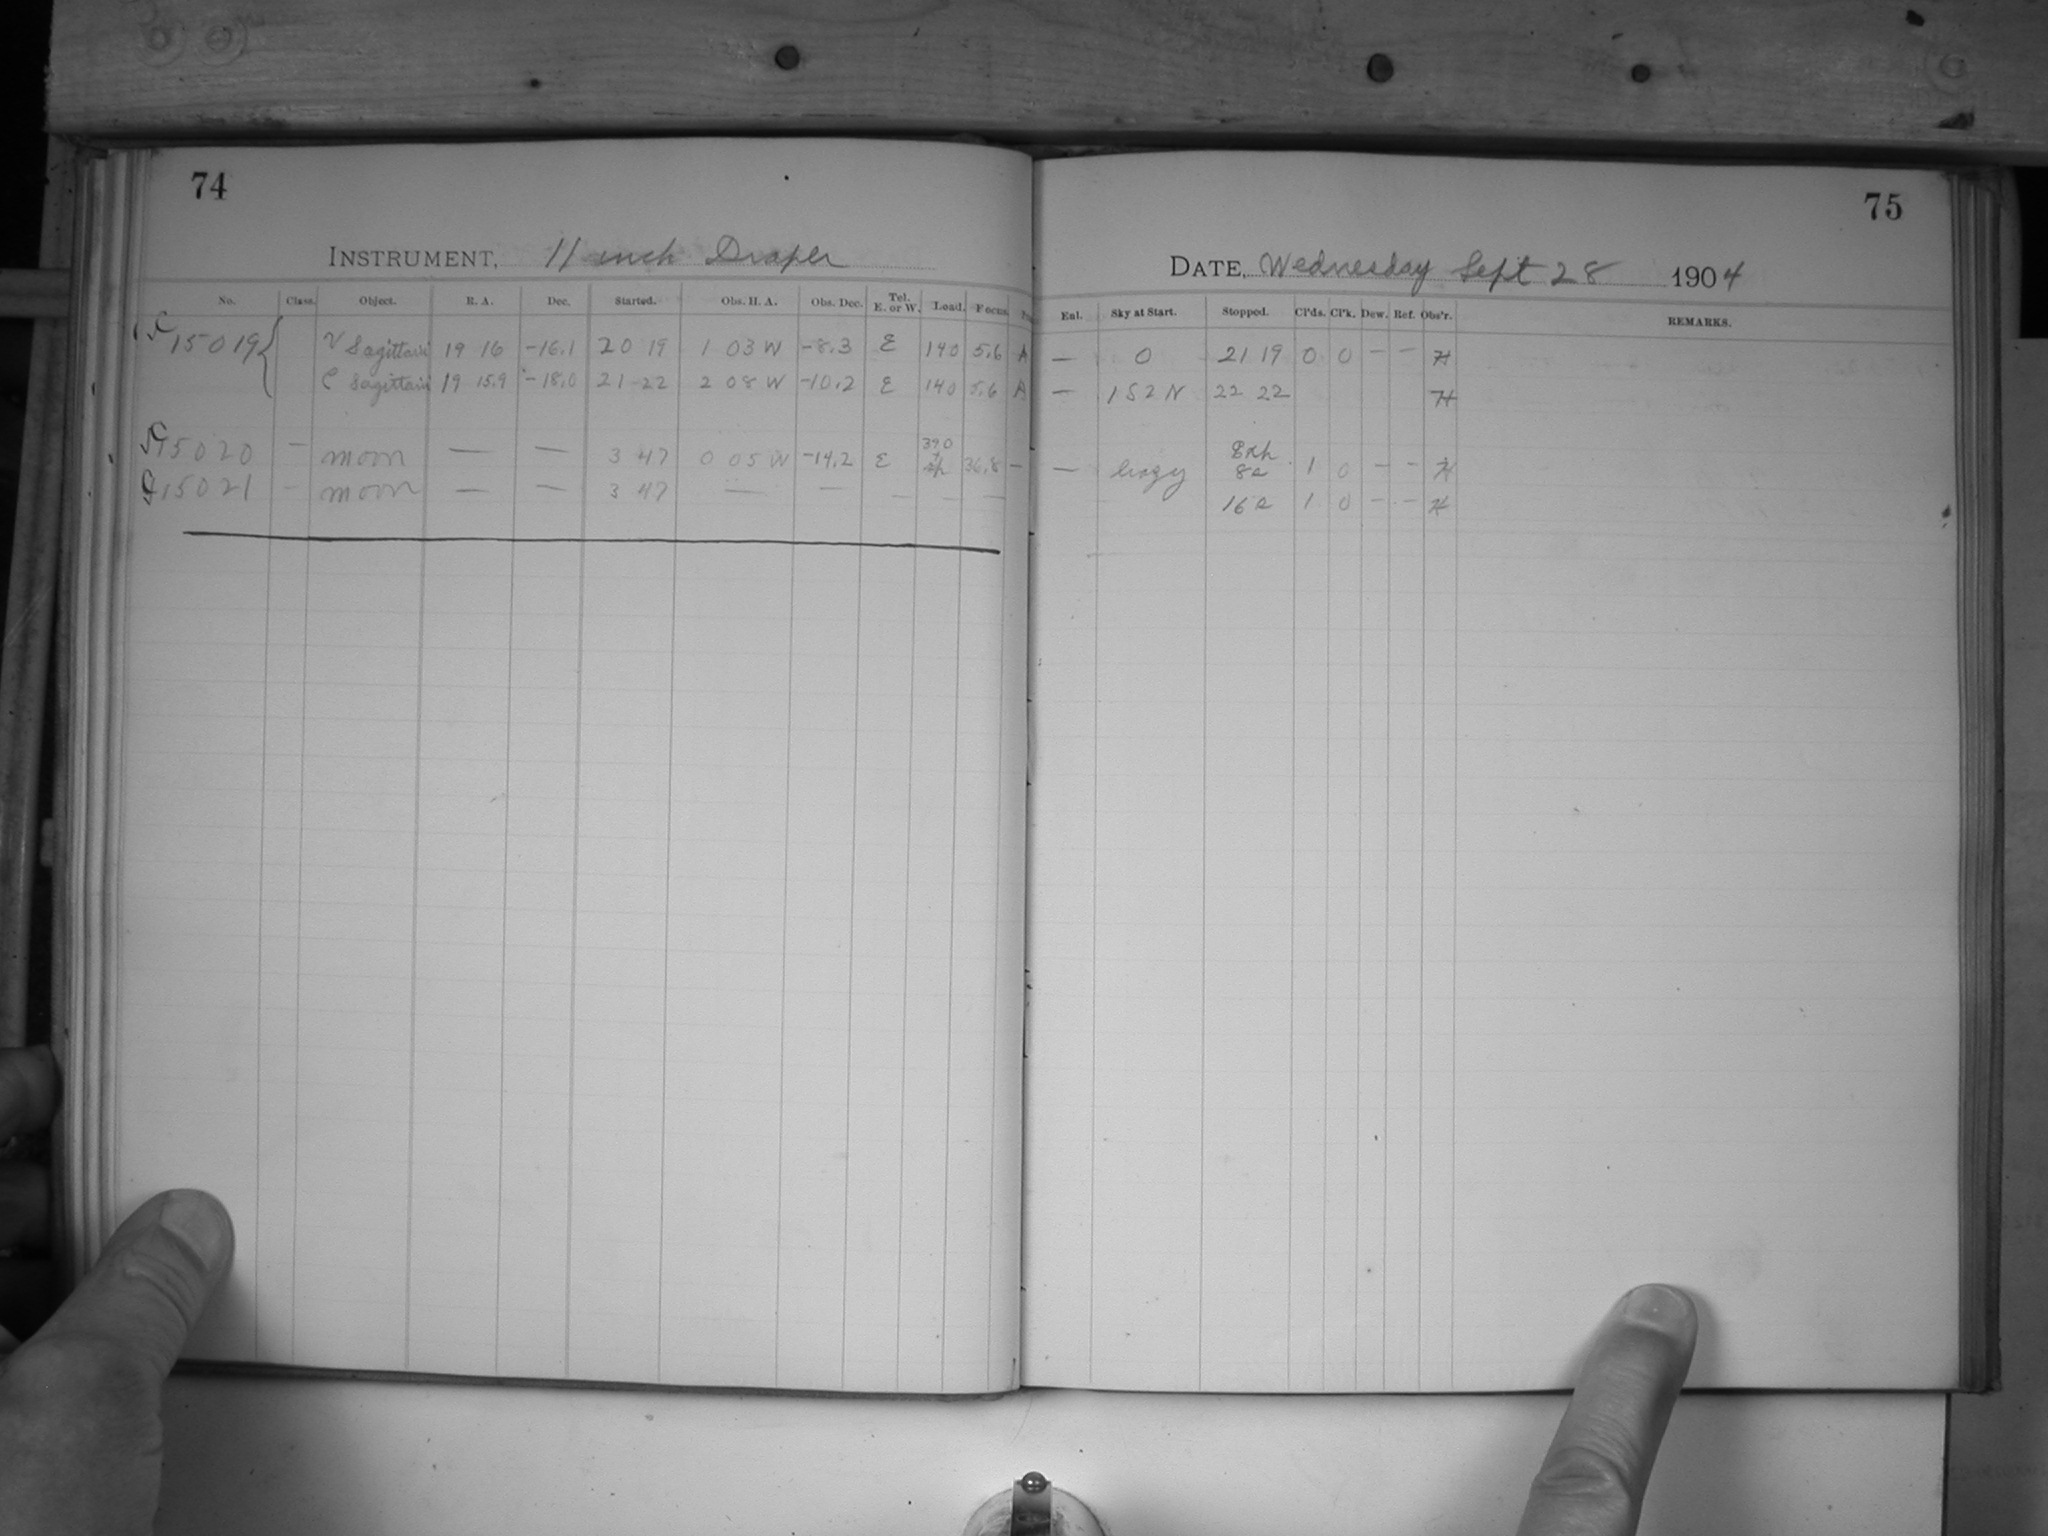 74
75
INSTRUMENT, 11 inch Draper
DATE, Wednesday Sept 28 1904
No. Class. Object. R. A. Dec. Started. Obs. H. A. Obs. Dec. Tel. E. or W. Load. Focus.
Enl. Sky at Start. Stopped. Cl'ds. Cl'k. Dew. Ref. Obs'r. REMARKS.
C 15019 { V Sagittarii 19 16 -16.1 20 19 1 03 W -8.3 E 140 5.6 A — 0 21 19 0 0 - - H
C Sagittarii 19 15.9 -18.0 21 22 2 08 W -10.2 E 140 5.6 A — 1 S 2 N 22 22 H
C 15020 — moon — — 3 47 0 05 W -14.2 E 390 36.8 — — hazy 8s 1 0 - - H
C 15021 — moon — — 3 47 — — — — — 16s 1 0 - - H